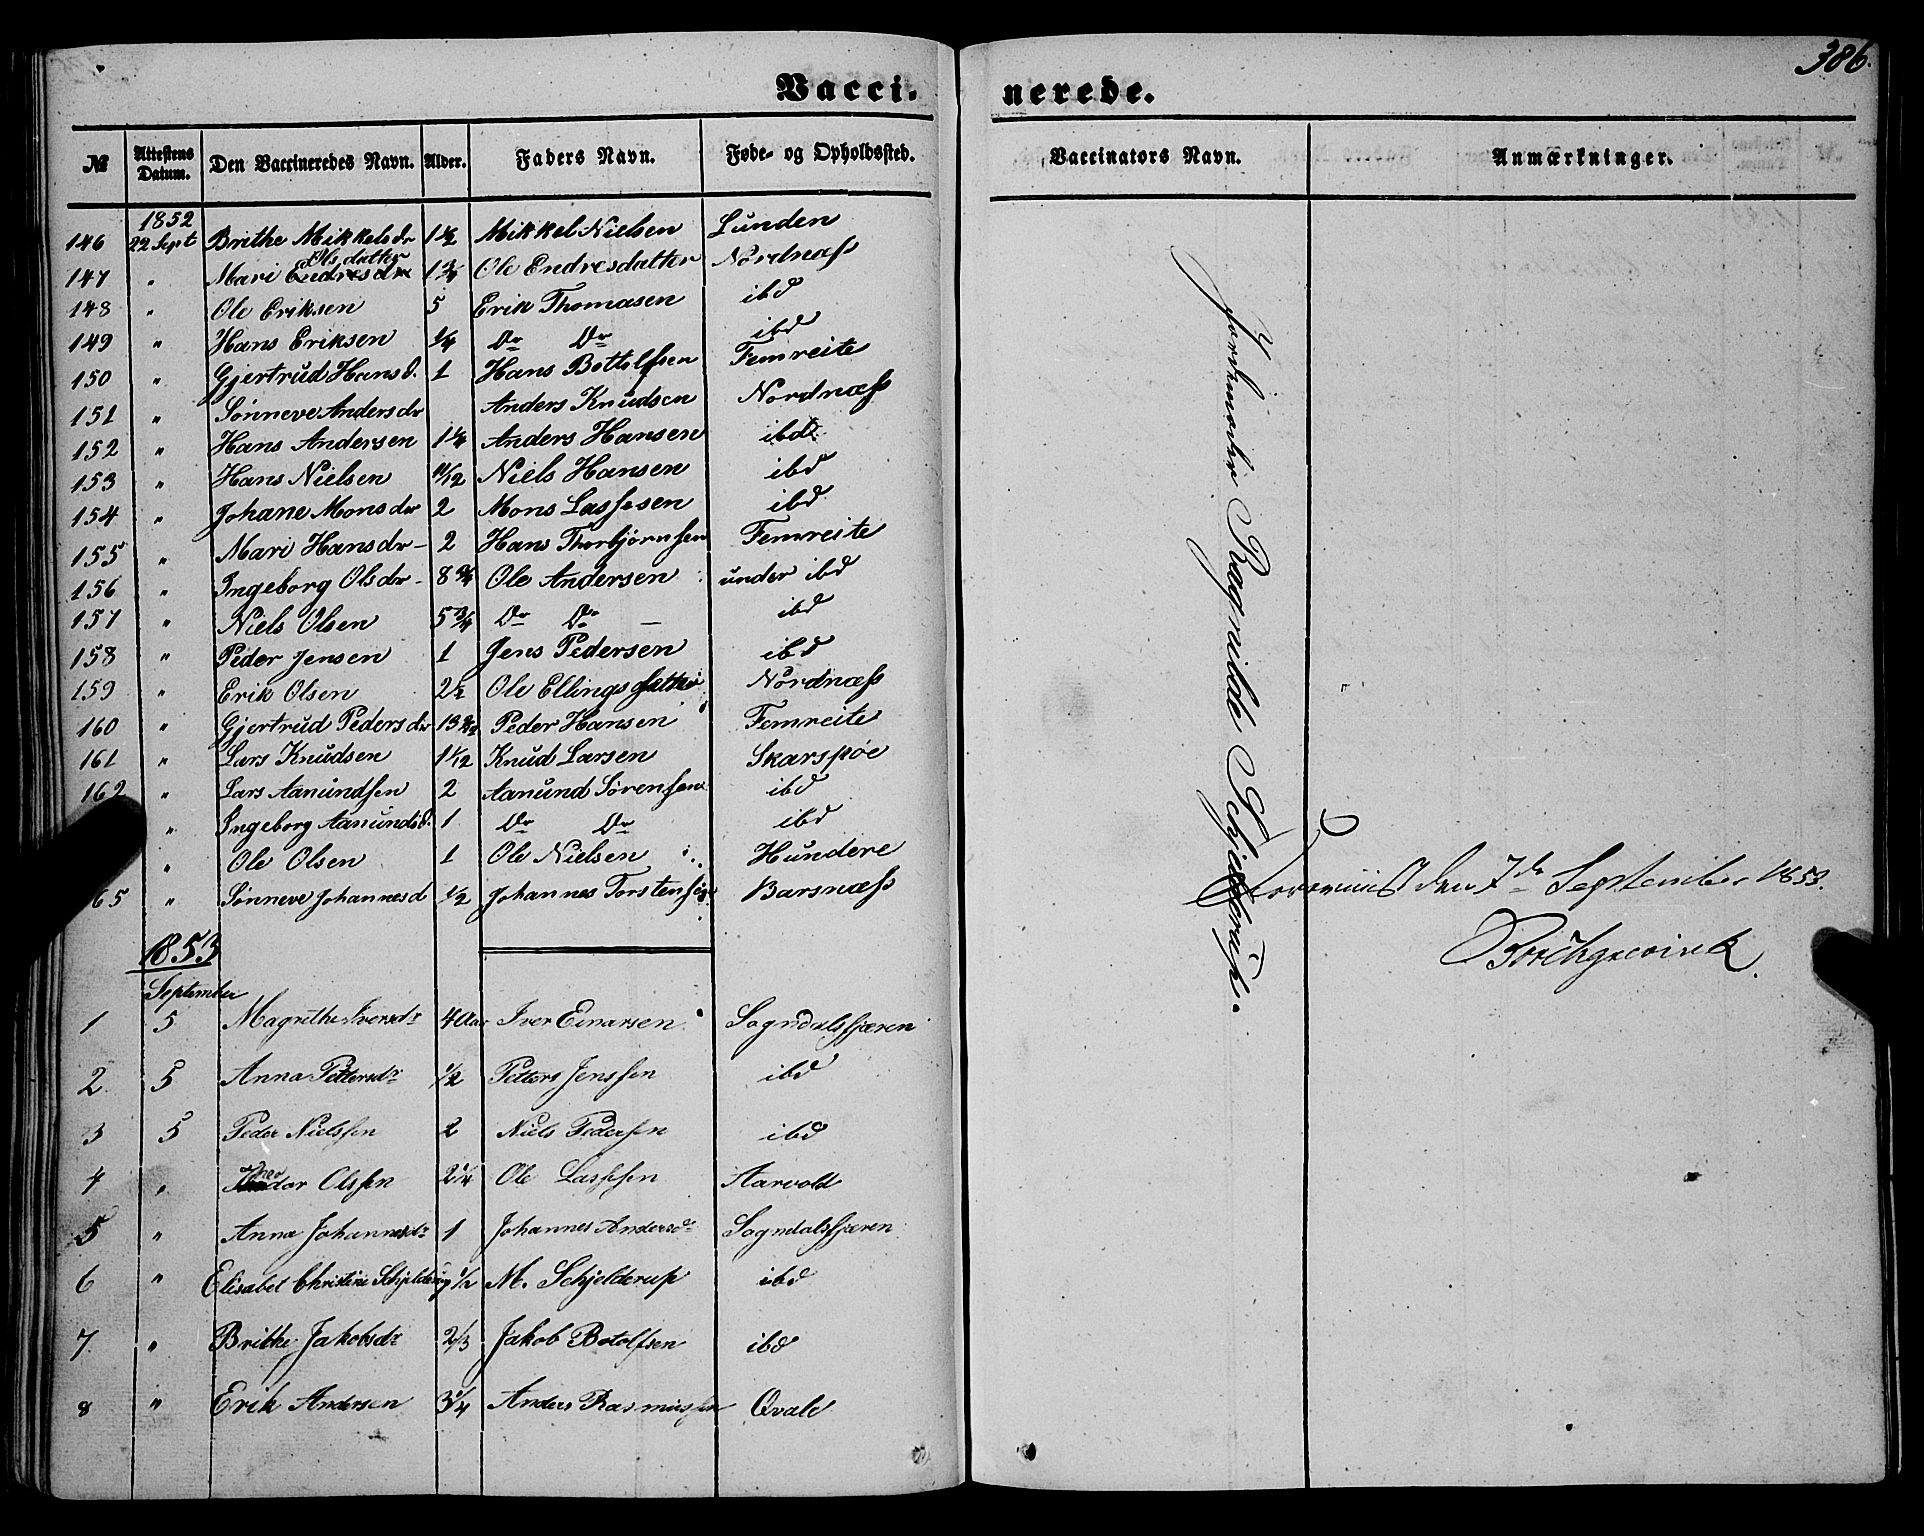 386.
Vacci. nerede.
№ Attestens Datum. Den Vaccineredes Navn. Alder. Faders Navn. Føde- og Opholdssted. Vaccinators Navn. Anmærkninger.
1852
146 22 Sept Brithe Mikkelsdr 1 1/2 Mikkel Nielsen Lunden
Olsdatter
147 " Mari Endresdr 1 3/4 Ole Endresdatter Nordnæss
148 " Ole Eriksen 5 Erik Thomasen ibd
149 " Hans Eriksen 1/4 Do Do ibd
150 " Gjertrud Hansd. 1 Hans Bottolfsen Femreite
151 " Sønneve Andersdr Anders Knudsen Nordnæss
152 " Hans Andersen 1 1/4 Anders Hansen ibd
153 " Hans Nielsen 11/12 Niels Hansen ibd
154 " Johane Monsdr 2 Mons Lassesen ibd
155 " Mari Hansdr - 2 Hans Thorbjørnsen Femreite
156 " Ingeborg Olsdr - 8 3/4 Ole Andersen under ibd
157 " Niels Olsen 5 3/4 Do Do - ibd
158 " Peder Jensen 1 Jens Pedersen ibd
159 " Erik Olsen 2 1/2 Ole Ellings Nordnæss
160 " Gjertrud Pedersdr 13 Peder Hansen Femreite
161 " Lars Knudsen 1 1/12 Knud Larsen Skarspøe
162 " Lars Aamundsen 2 Aamund Sørensen ibd
" Ingeborg Aamundsd. 1 Do Do ibd
" Ole Olsen 1 Ole Nielsen Hundere
65 " Sønneve Johannesd 1/2 Johannes Torstensen Barsnæss
1853
September
1 5 Magrethe Iversdr 4 Aar Iver Einarsen Sogndalsfjæren
2 5 Anna Pettersdr 1/2 Petters Jenssen ibd
3 5 Peder Nielssen 2 Niels Pederssen ibd
4 " Olssen 2 1/4 Ole Lassesen Aarvold
5 " Anna Johannesdr 1 Johannes Andersdr Sogndalsfjæren
6 " Elisabet Christine Schjelderup 1/2 M. Schjelderup ibd
7 " Brithe Jakobsdr 2/3 Jakob Botolfsen ibd
8 " Erik Andersen 3 1/4 Anders Rasmussen Qvale
Jordemoder Ragnilde Schjelderup.
den 7de September 1853.
Borchgrevink